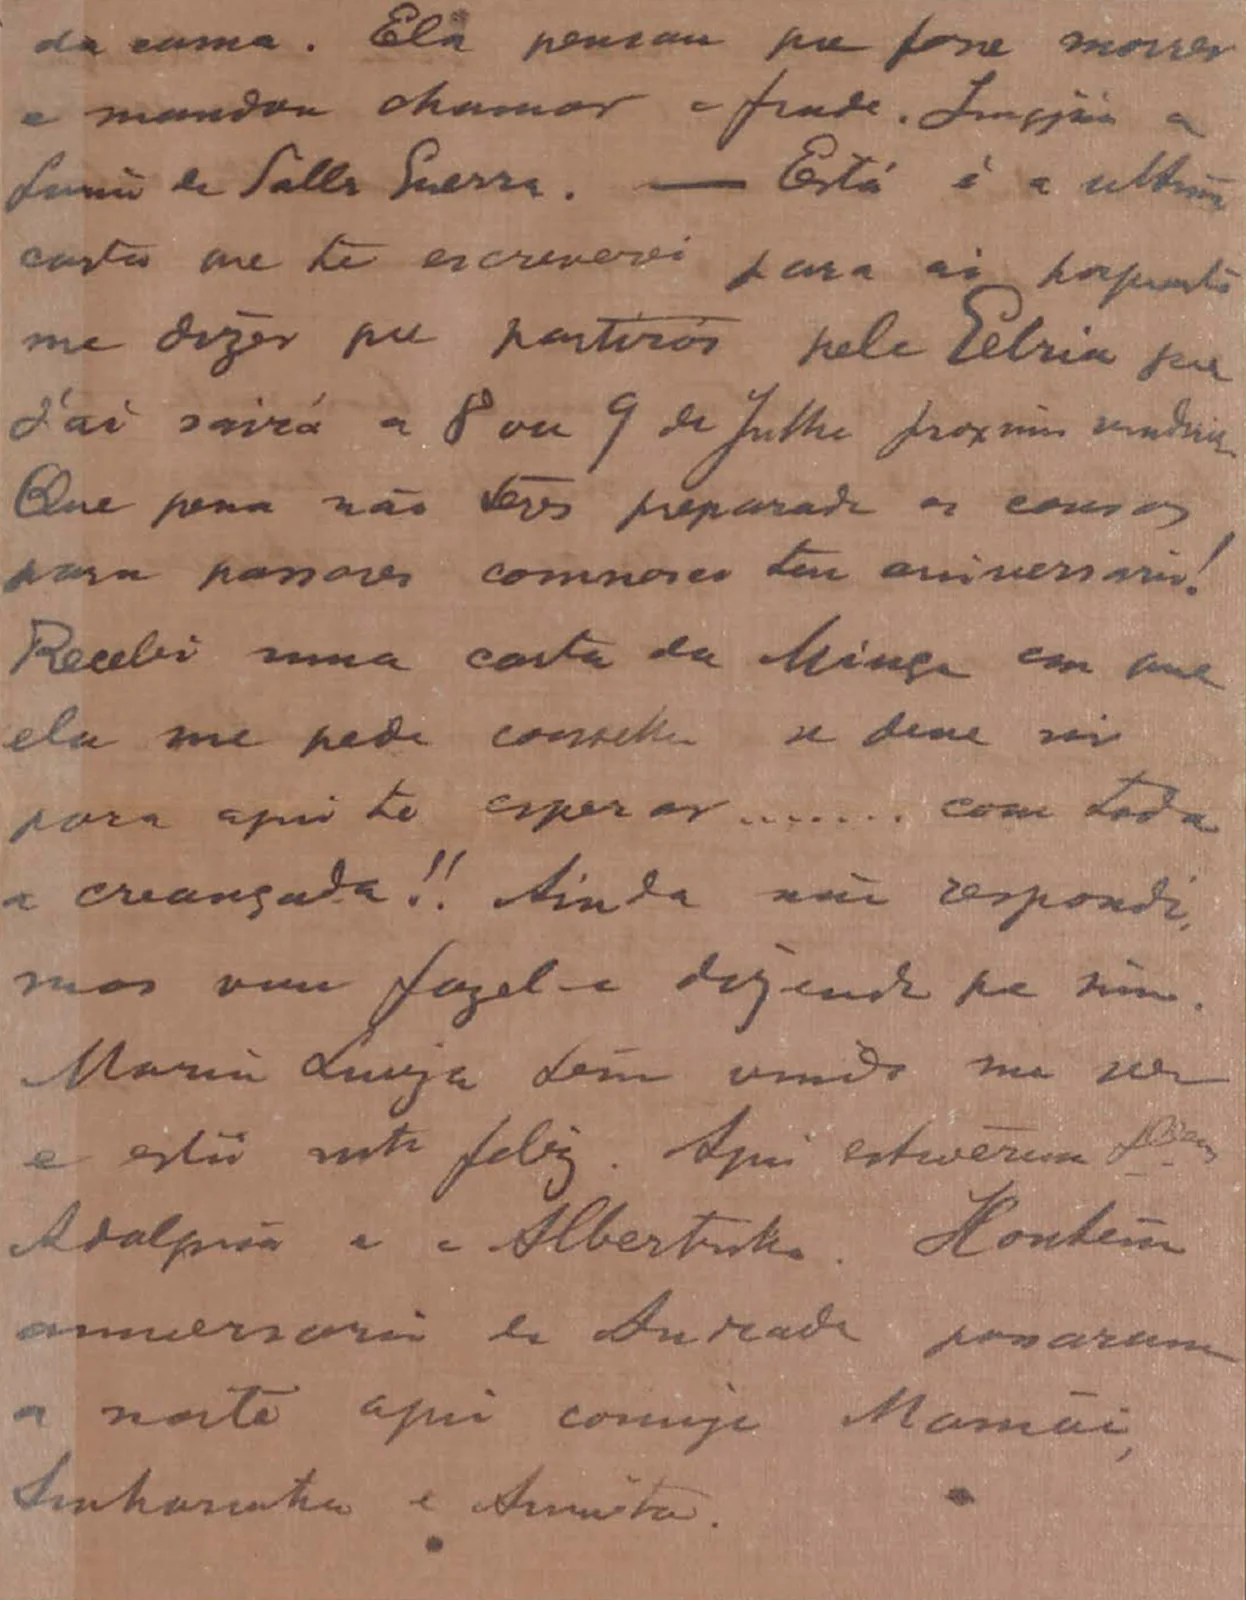 da cama. Ela pensou que fosse morrer
e mandou chamar o frade.
de Salla Guerra. — Está é a ultima
carta que te escreverei para ai porquanto
me dizes que partirás pelo que
d'ai sairá a 8 ou 9 de Julho proximo
Que pena não teres preparado as cousas
para passares comnosco teu aniversario!
Recebi uma carta da Minga em que
ela me pede conselho se deve vir
para aqui te esperar........ com toda
a creançada!! Ainda não respondi,
mas vou fazel-o dizendo que sim.
Maria Luiza tem vindo me ver
e está mto feliz. Aqui estiveram
a e o Albertinho. Hontem
anniversario de Andrade passaram
a noite aqui comigo Mamãi,
Sinhasinha e Annita.